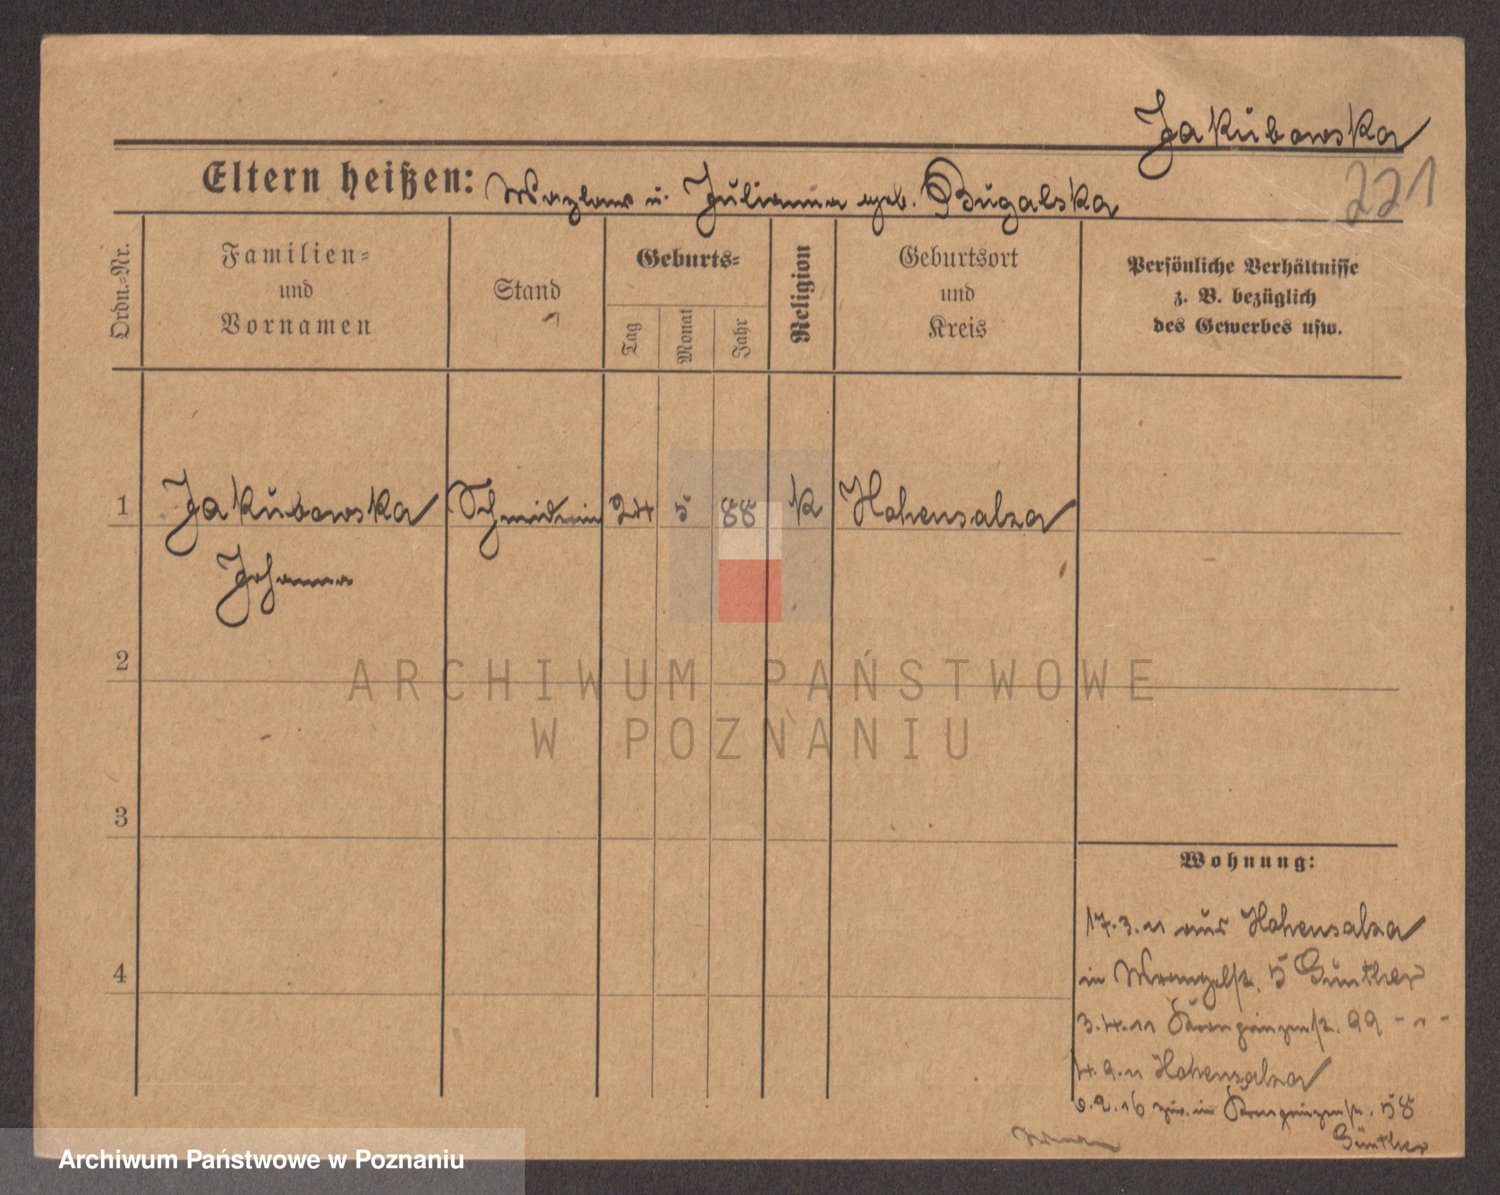 Jakubowska
221
Eltern heißen: Wazlaw u. Julianna geb. Bugalska
Ordn.-Nr.
Familien-
und
Vornamen
Stand
Geburts-
Tag
Monat
Jahr
Religion
Geburtsort
und
Kreis
Persönliche Verhältnisse
z. B. bezüglich
des Gewerbes usw.
1 Jakubowska Schneiderin 24 5 88 K Hohensalza
Johanna
2
ARCHIWUM PAŃSTWOWE
W POZNANIU
3
Wohnung:
17.3.11 aus Hohensalza
in Wrangelst. 5 Günther
4
3.4.11 Kronprinzenst. 99 - " -
4.9.11 Hohensalza
6.2.16 zur. in Kronprinzenst. 58
Günther
Archiwum Państwowe w Poznaniu